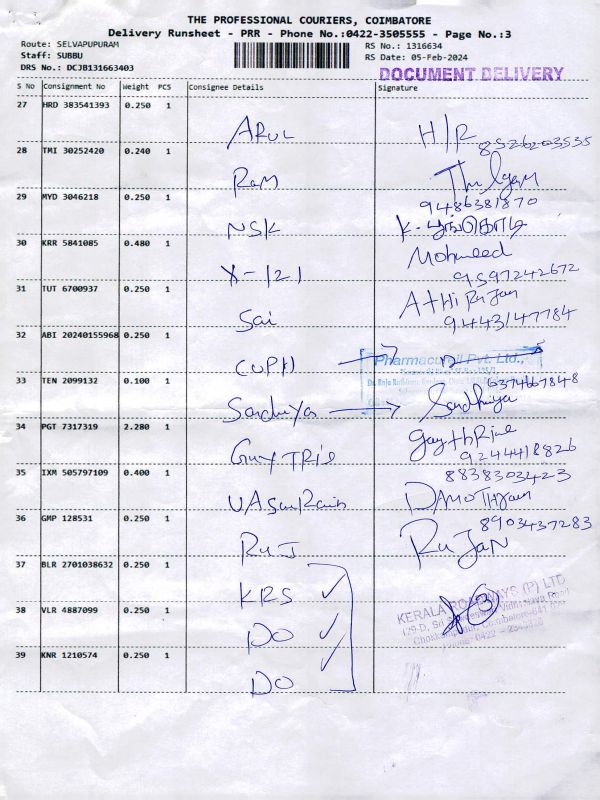 THE PROFESSIONAL COURIERS, COIMBATORE
Delivery Runsheet - PRR - Phone No.:0422-3505555 - Page No.:3
Route: SELVAPUPURAM RS No.: 1316634
Staff: SUBBU RS Date: 05-Feb-2024
DRS No.: DCJB131663403
DOCUMENT DELIVERY
S No Consignment No Weight PCS Consignee Details Signature
27 HRD 383541393 0.250 1
ARUL H/R 8526203535
28 TMI 30252420 0.240 1
Ram
9486381870
29 MYD 3046218 0.250 1
NSK
30 KRR 5841085 0.480 1
Mohmeed
X-121 9597242672
31 TUT 6700937 0.250 1
Sai Athi Rujan
9443147784
32 ABI 20240155968 0.250 1
CUPH
Pharmacunil Pvt. Ltd.,
33 TEN 2099132 0.100 1
6374667848
Sandhiya
34 PGT 7317319 2.280 1
9244418826
35 IXM 505797109 0.400 1
8838303423
36 GMP 128531 0.250 1
8903437283
RUJ RUJAN
37 BLR 2701038632 0.250 1
KRS
KERALA ROADWAYS (P) LTD
38 VLR 4887099 0.250 1
DO
39 KNR 1210574 0.250 1
DO